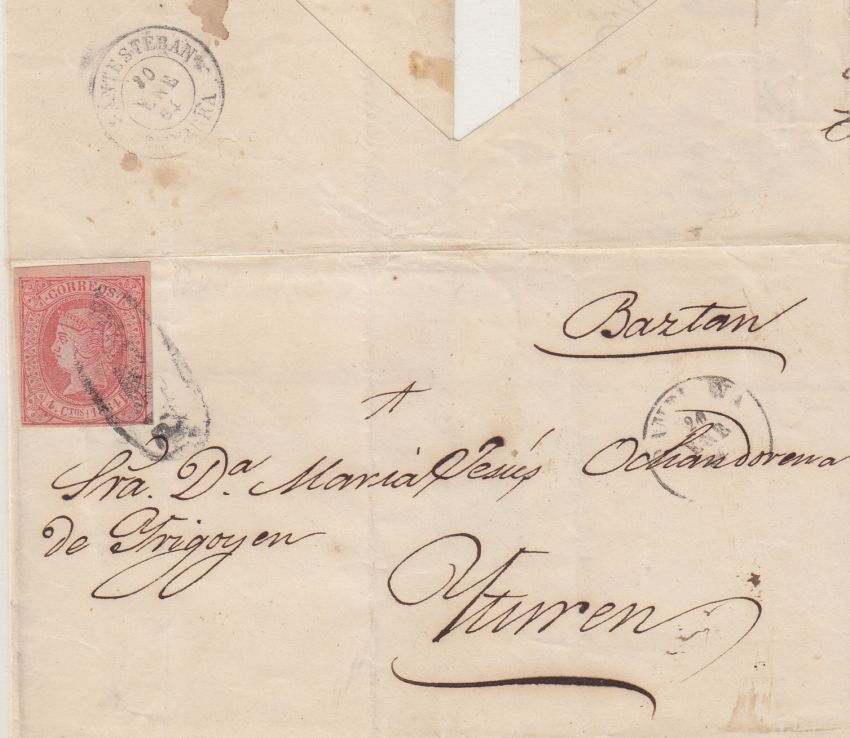 SANTESTÉBAN
30
ENE
NAVARRA
CORREOS
4 CTOS
Baztan
A
Sra. D.ª Maria Jesús Ochandorena
de Yrigoyen
Yturen